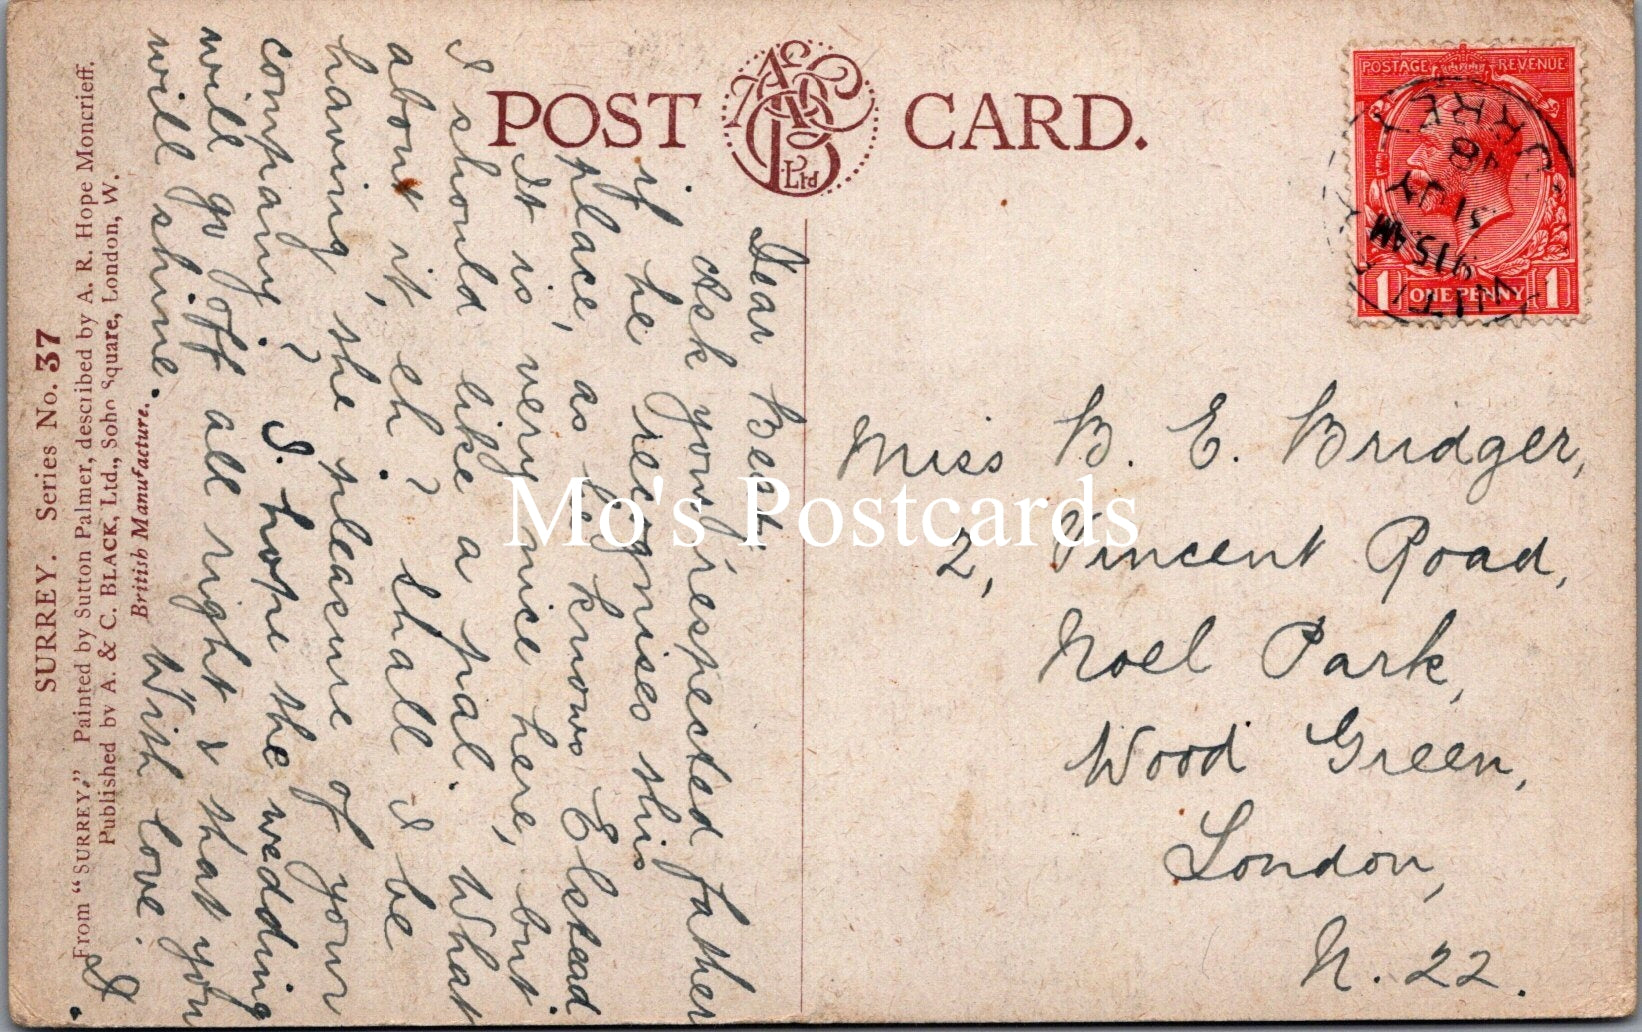 POST CARD.
A&C B Ltd
POSTAGE REVENUE
9 15 AM
31 JY
18
SURREY
1 ONE PENNY 1
Miss B. E. Bridger,
2, Vincent Road,
Noel Park,
Wood Green,
London,
N. 22.
Dear Beat,
Ask your respected father
if he recognises this
place, as he knows Elstead
It is very nice here, but
I should like a pal. What
about it, eh? Shall I be
having the pleasure of your
company? I hope the wedding
will go off all right & that you
will shine. With love.
SURREY. Series No. 37
From "SURREY." Painted by Sutton Palmer, described by A. R. Hope Moncrieff.
Published by A. & C. BLACK, Ltd., Soho Square, London, W.
British Manufacture.
Mo's Postcards